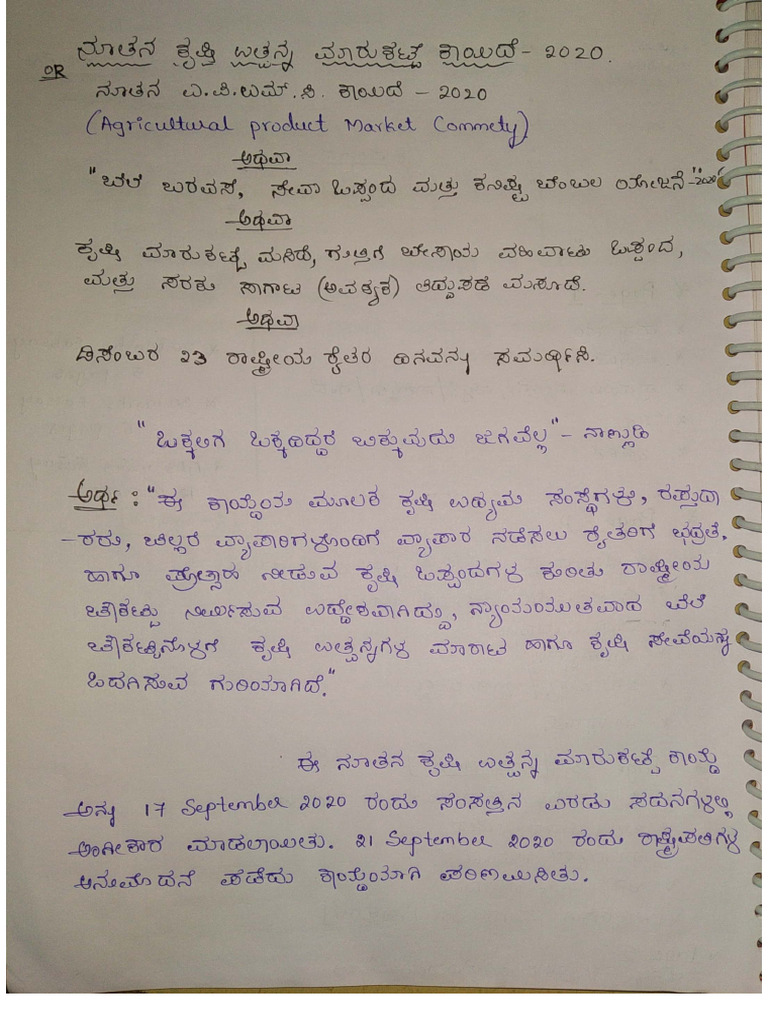 ನೂತನ ಕೃಷಿ ಉತ್ಪನ್ನ ಮಾರುಕಟ್ಟೆ ಕಾಯಿದೆ - 2020.
OR
ನೂತನ ಎ.ಪಿ.ಎಮ್.ಸಿ. ಕಾಯಿದೆ - 2020
(Agricultural product Market Commety)
ಅಥವಾ
"ಬೆಲೆ ಬರವಸೆ, ಸೇವಾ ಒಪ್ಪಂದ ಮತ್ತು ಕನಿಷ್ಟ ಬೆಂಬಲ ಯೋಜನೆ"-2020
ಅಥವಾ
ಕೃಷಿ ಮಾರುಕಟ್ಟೆ ಮಸಿದೆ, ಗುತ್ತಿಗೆ ಬೇಸಾಯ ವಹಿವಾಟು ಒಪ್ಪಂದ,
ಮತ್ತು ಸರಕು ಸಾಗಾಟ (ಅವಶ್ಯಕ) ತಿದ್ದುಪಡೆ ಮಸೂದೆ.
ಅಥವಾ
ಡಿಸೆಂಬರ 23 ರಾಷ್ಟ್ರೀಯ ರೈತರ ದಿನವನ್ನು ಸಮರ್ಥಿಸಿ.
"ಒಕ್ಕಲಿಗ ಒಕ್ಕದಿದ್ದರೆ ಬಿಕ್ಕುವುದು ಜಗವೆಲ್ಲ" - ನಾಣ್ಣುಡಿ
ಅರ್ಥ : "ಈ ಕಾಯ್ದೆಯ ಮೂಲಕ ಕೃಷಿ ಉದ್ಯಮ ಸಂಸ್ಥೆಗಳು, ರಪ್ತುದಾ
-ರರು, ಚಿಲ್ಲರೆ ವ್ಯಾಪಾರಿಗಳೊಂದಿಗೆ ವ್ಯಾಪಾರ ನಡೆಸಲು ರೈತರಿಗೆ ಭದ್ರತೆ,
ಹಾಗೂ ಪ್ರೋತ್ಸಾಹ ನೀಡುವ ಕೃಷಿ ಒಪ್ಪಂದಗಳ ಕುರಿತು ರಾಷ್ಟ್ರೀಯ
ಚೌಕಟ್ಟು ನಿರ್ಮಿಸುವ ಉದ್ದೇಶವಾಗಿದ್ದು, ನ್ಯಾಯಯುತವಾದ ಬೆಲೆ
ಚೌಕಟ್ಟಿನೊಳಗೆ ಕೃಷಿ ಉತ್ಪನ್ನಗಳ ಮಾರಾಟ ಹಾಗೂ ಕೃಷಿ ಸೇವೆಯನ್ನ
ಒದಗಿಸುವ ಗುರಿಯಾಗಿದೆ."
ಈ ನೂತನ ಕೃಷಿ ಉತ್ಪನ್ನ ಮಾರುಕಟ್ಟೆ ಕಾಯ್ದೆ
ಅನ್ನು 17 September 2020 ರಂದು ಸಂಸತ್ತಿನ ಎರಡು ಸದನಗಳಲ್ಲಿ
ಅಂಗೀಕಾರ ಮಾಡಲಾಯಿತು. 21 September 2020 ರಂದು ರಾಷ್ಟ್ರಪತಿಗಳ
ಅನುಮೋದನೆ ಪಡೆದು ಕಾಯ್ದೆಯಾಗಿ ಪರಿಣಮಿಸಿತು.